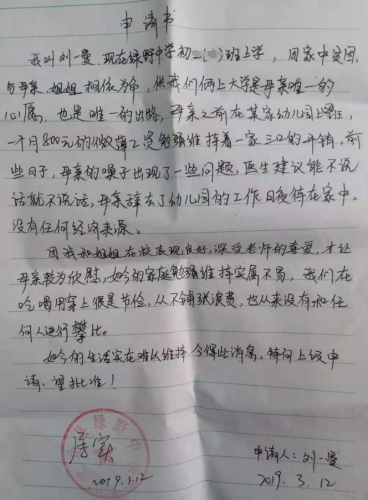 申请书
我叫刘一曼,现在绿野中学初一()班上学,因家中贫困,
与母亲、姐姐相依为命,供我们俩上大学是母亲唯一的
心愿,也是唯一的出路,母亲之前在某家幼儿园上班,
一个月800元的微薄工资勉强维持着一家三口的开销,前
些日子,母亲的嗓子出现了一些问题,医生建议能不说
话就不说话,母亲辞去了幼儿园的工作日夜待在家中,
没有任何经济来源。
因我和姐姐在校表现良好,深受老师的喜爱,才让
母亲较为欣慰,如今的家庭勉强维持实属不易,我们在
吃喝用穿上很是节俭,从不铺张浪费,也从来没有和任
何人进行攀比。
如今的生活实在难以维持,今得此消息,特向上级申
请,望批准!
属实
2019.3.12
申请人:刘一曼
2019.3.12